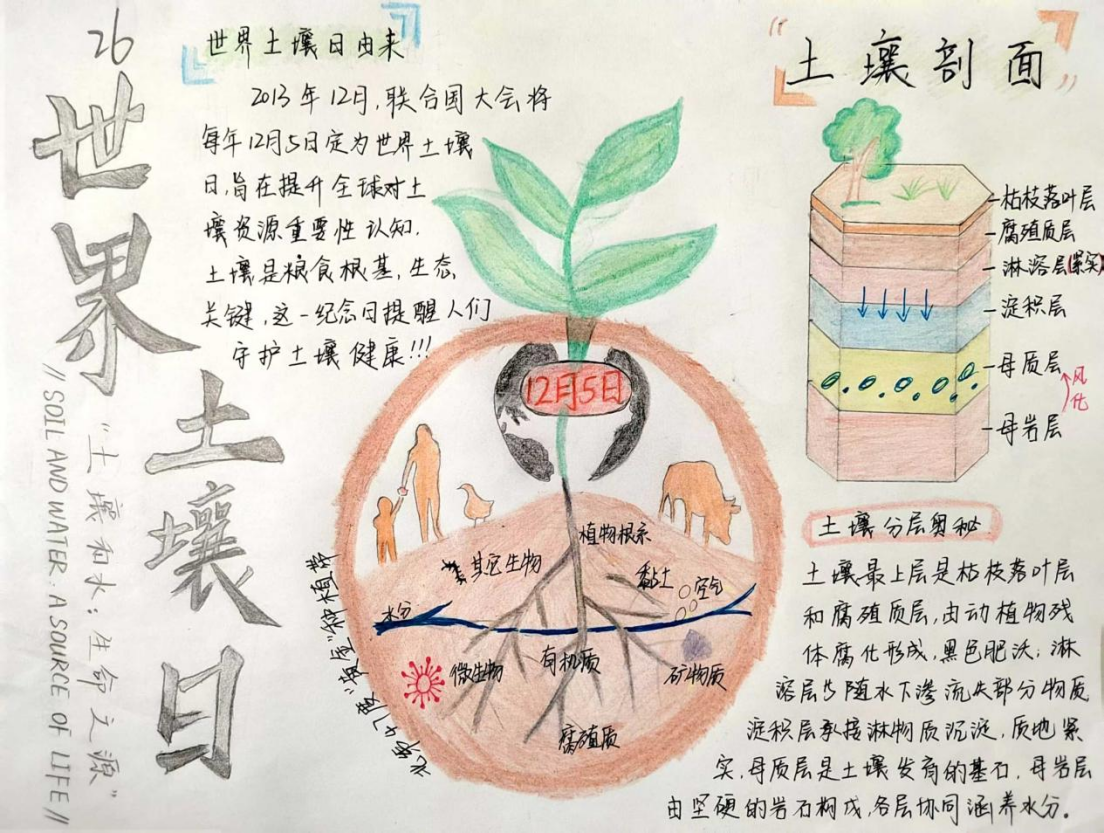 26
世界土壤日
"土壤和水：生命之源"
//SOIL AND WATER. A SOURCE OF LIFE//
世界土壤日由来
2013年12月，联合国大会将
每年12月5日定为世界土壤
日，旨在提升全球对土
壤资源重要性认知。
土壤是粮食根基，生态
关键，这一纪念日提醒人们
守护土壤健康!!!
12月5日
植物根系
其它生物
黏土
空气
水分
微生物
有机质
矿物质
腐殖质
土壤剖面
枯枝落叶层
腐殖质层
淋溶层(紧实)
淀积层
母质层
风化
母岩层
土壤分层奥秘
土壤最上层是枯枝落叶层
和腐殖质层，由动植物残
体腐化形成，黑色肥沃；淋
溶层
随水下渗流失部分物质
淀积层承接淋物质沉淀，质地紧
实，母质层是土壤发育的基石，母岩层
由坚硬的岩石构成，各层协同涵养水分。